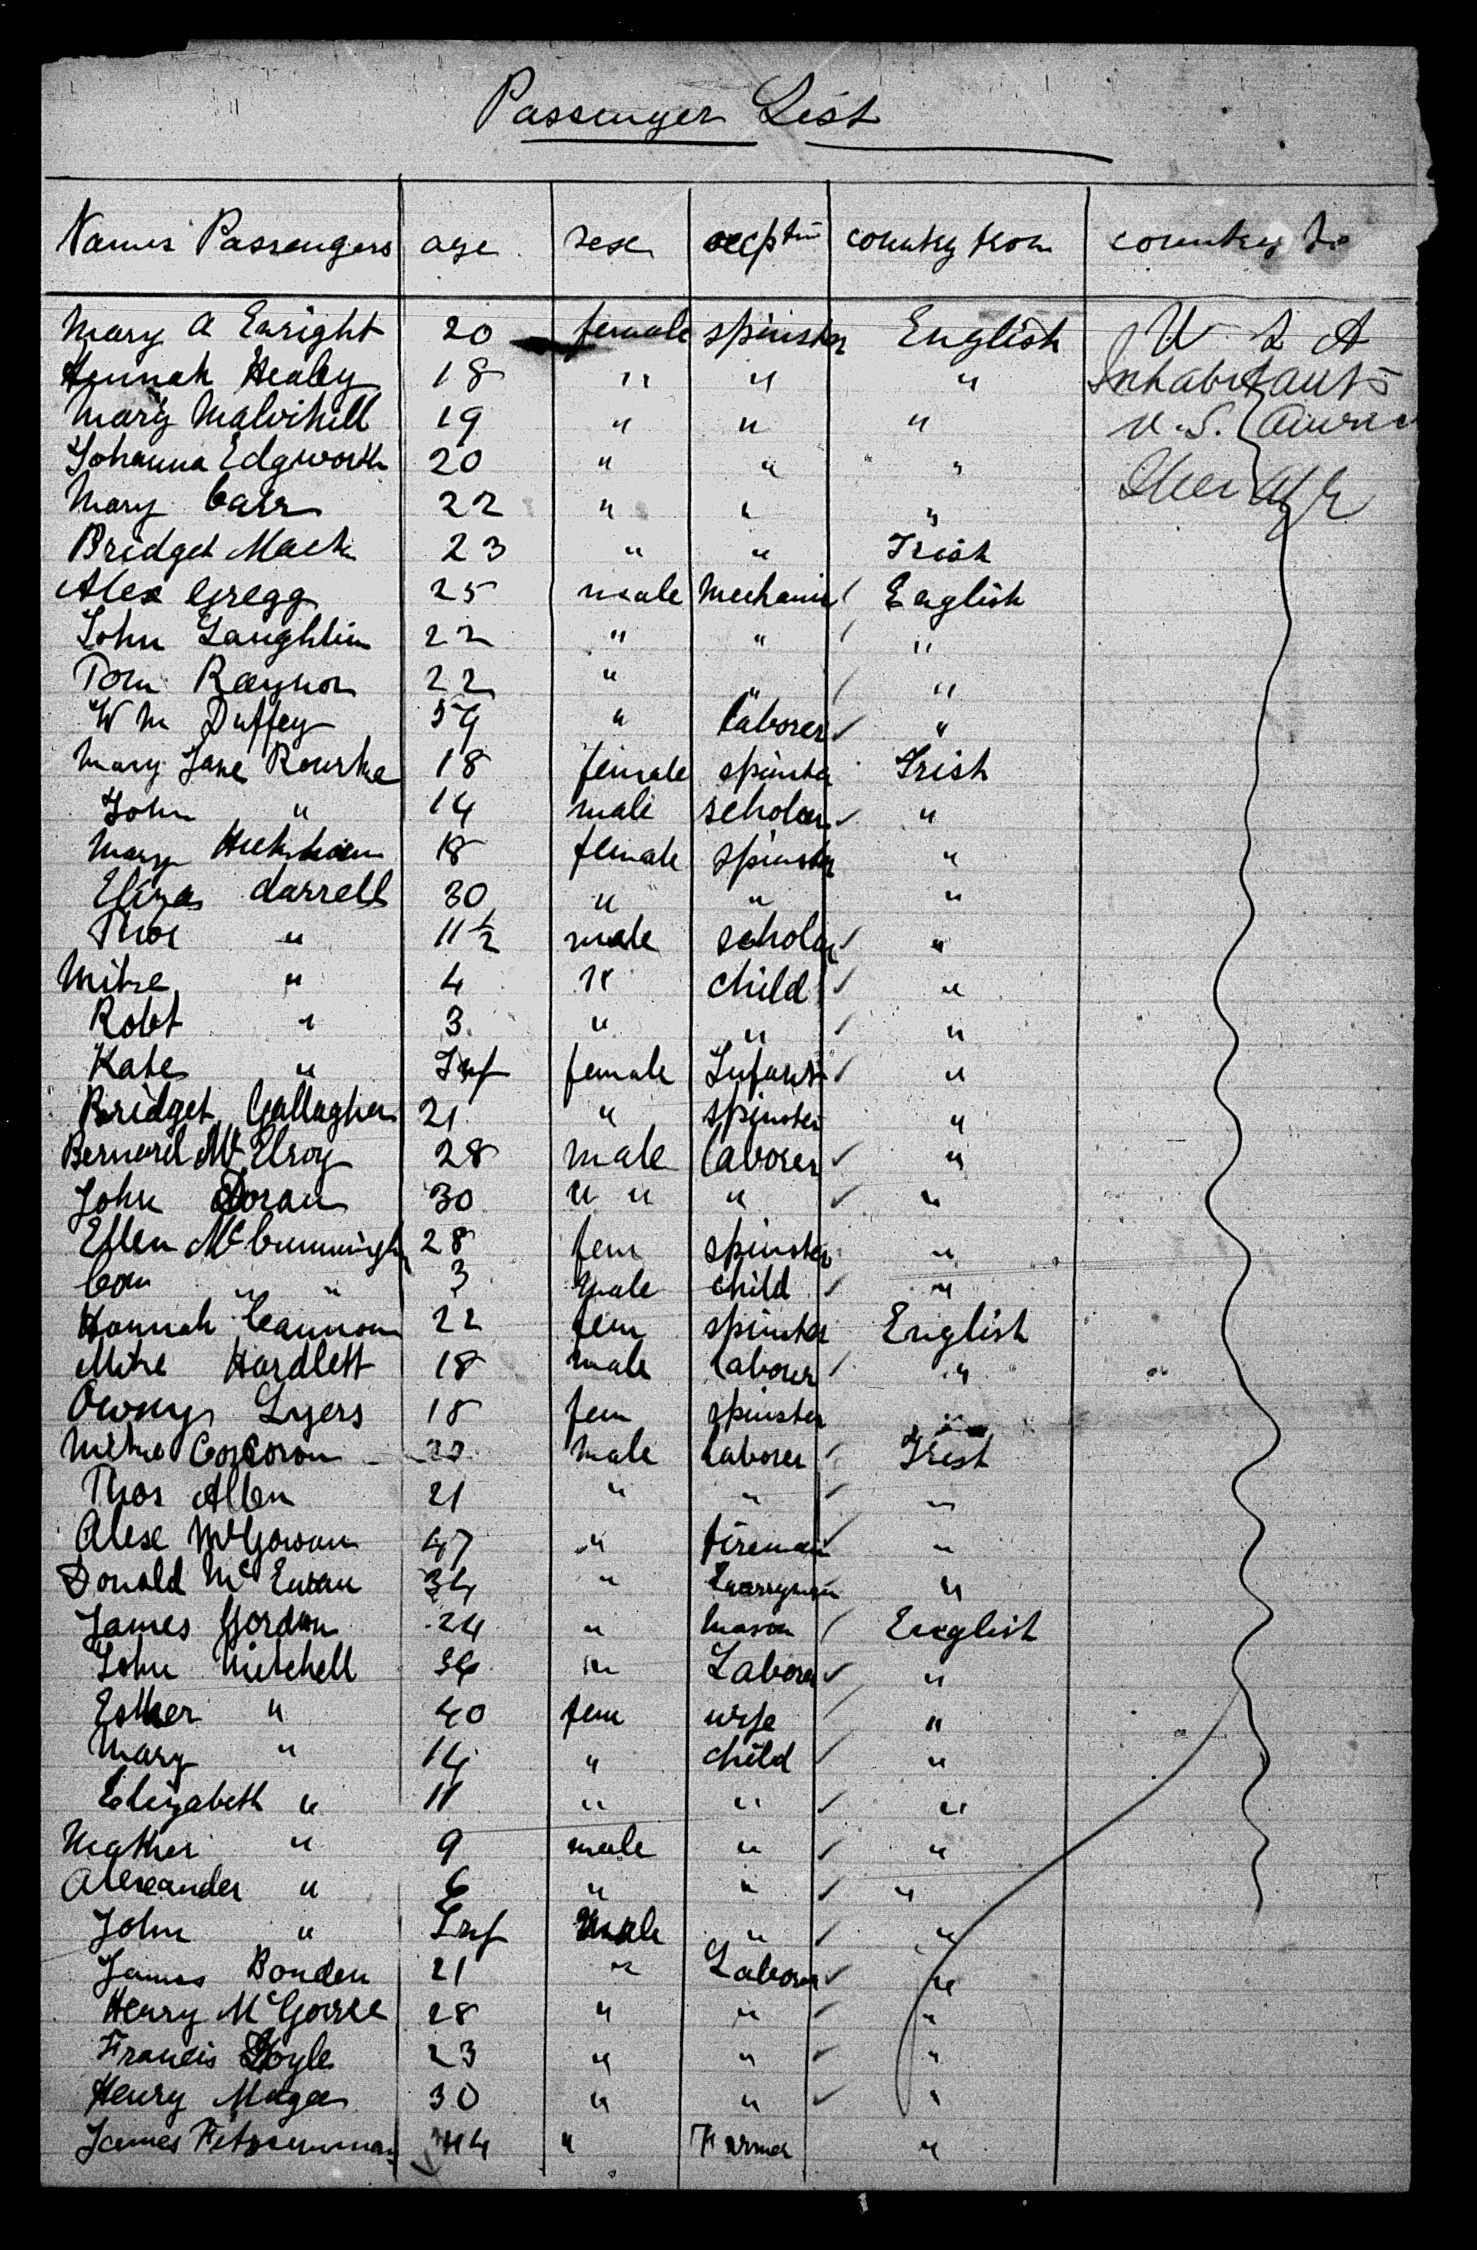 Passenger List
Names Passengers age sex country from country to
Mary A Enright 20 female spinster English U S A
Hannah Healey 18 " " " Inhabitants
Mary Malvihill 19 " " " U.S. America
Johanna Edgworth 20 " " " Steerage
Mary Carr 22 " " "
Bridget Mack 23 " " Irish
Alex Gregg 25 male Mechanic English
John Laughlin 22 " " "
Tom Raynor 22 " " "
Wm Duffey 59 " laborer "
Mary Jane Rourke 18 female spinster Irish
John " 14 male scholar "
Mary 18 female spinster "
Eliza Darrell 30 " " "
Thos " 11½ male scholar "
" 4 " child "
Robt " 3 " " "
Kate " Inf female Infant "
Bridget Gallagher 21 " spinster "
Bernard McElroy 28 male laborer "
John Doran 30 " " " "
Ellen McCunningh 28 fem spinster "
Con " " 3 male child "
Hannah Cannon 22 fem spinster English
Hardlett 18 male laborer "
Lyers 18 fem spinster "
Corcoran male laborer Irish
Thos Allen 21 " " "
Alex McGowan 47 " fireman "
Donald McEwan 34 " Quarryman "
James Gordon 24 " mason English
John Mitchell " Laborer "
Esther " 40 fem wife "
Mary " 14 " child "
Elizabeth " 11 " " "
" 9 male " "
Alexander " 6 " " "
John " Inf male " "
James Bonden 21 " Laborer "
Henry 28 " " "
Francis 23 " " "
Henry Magee 30 " " "
James 44 " Farmer "